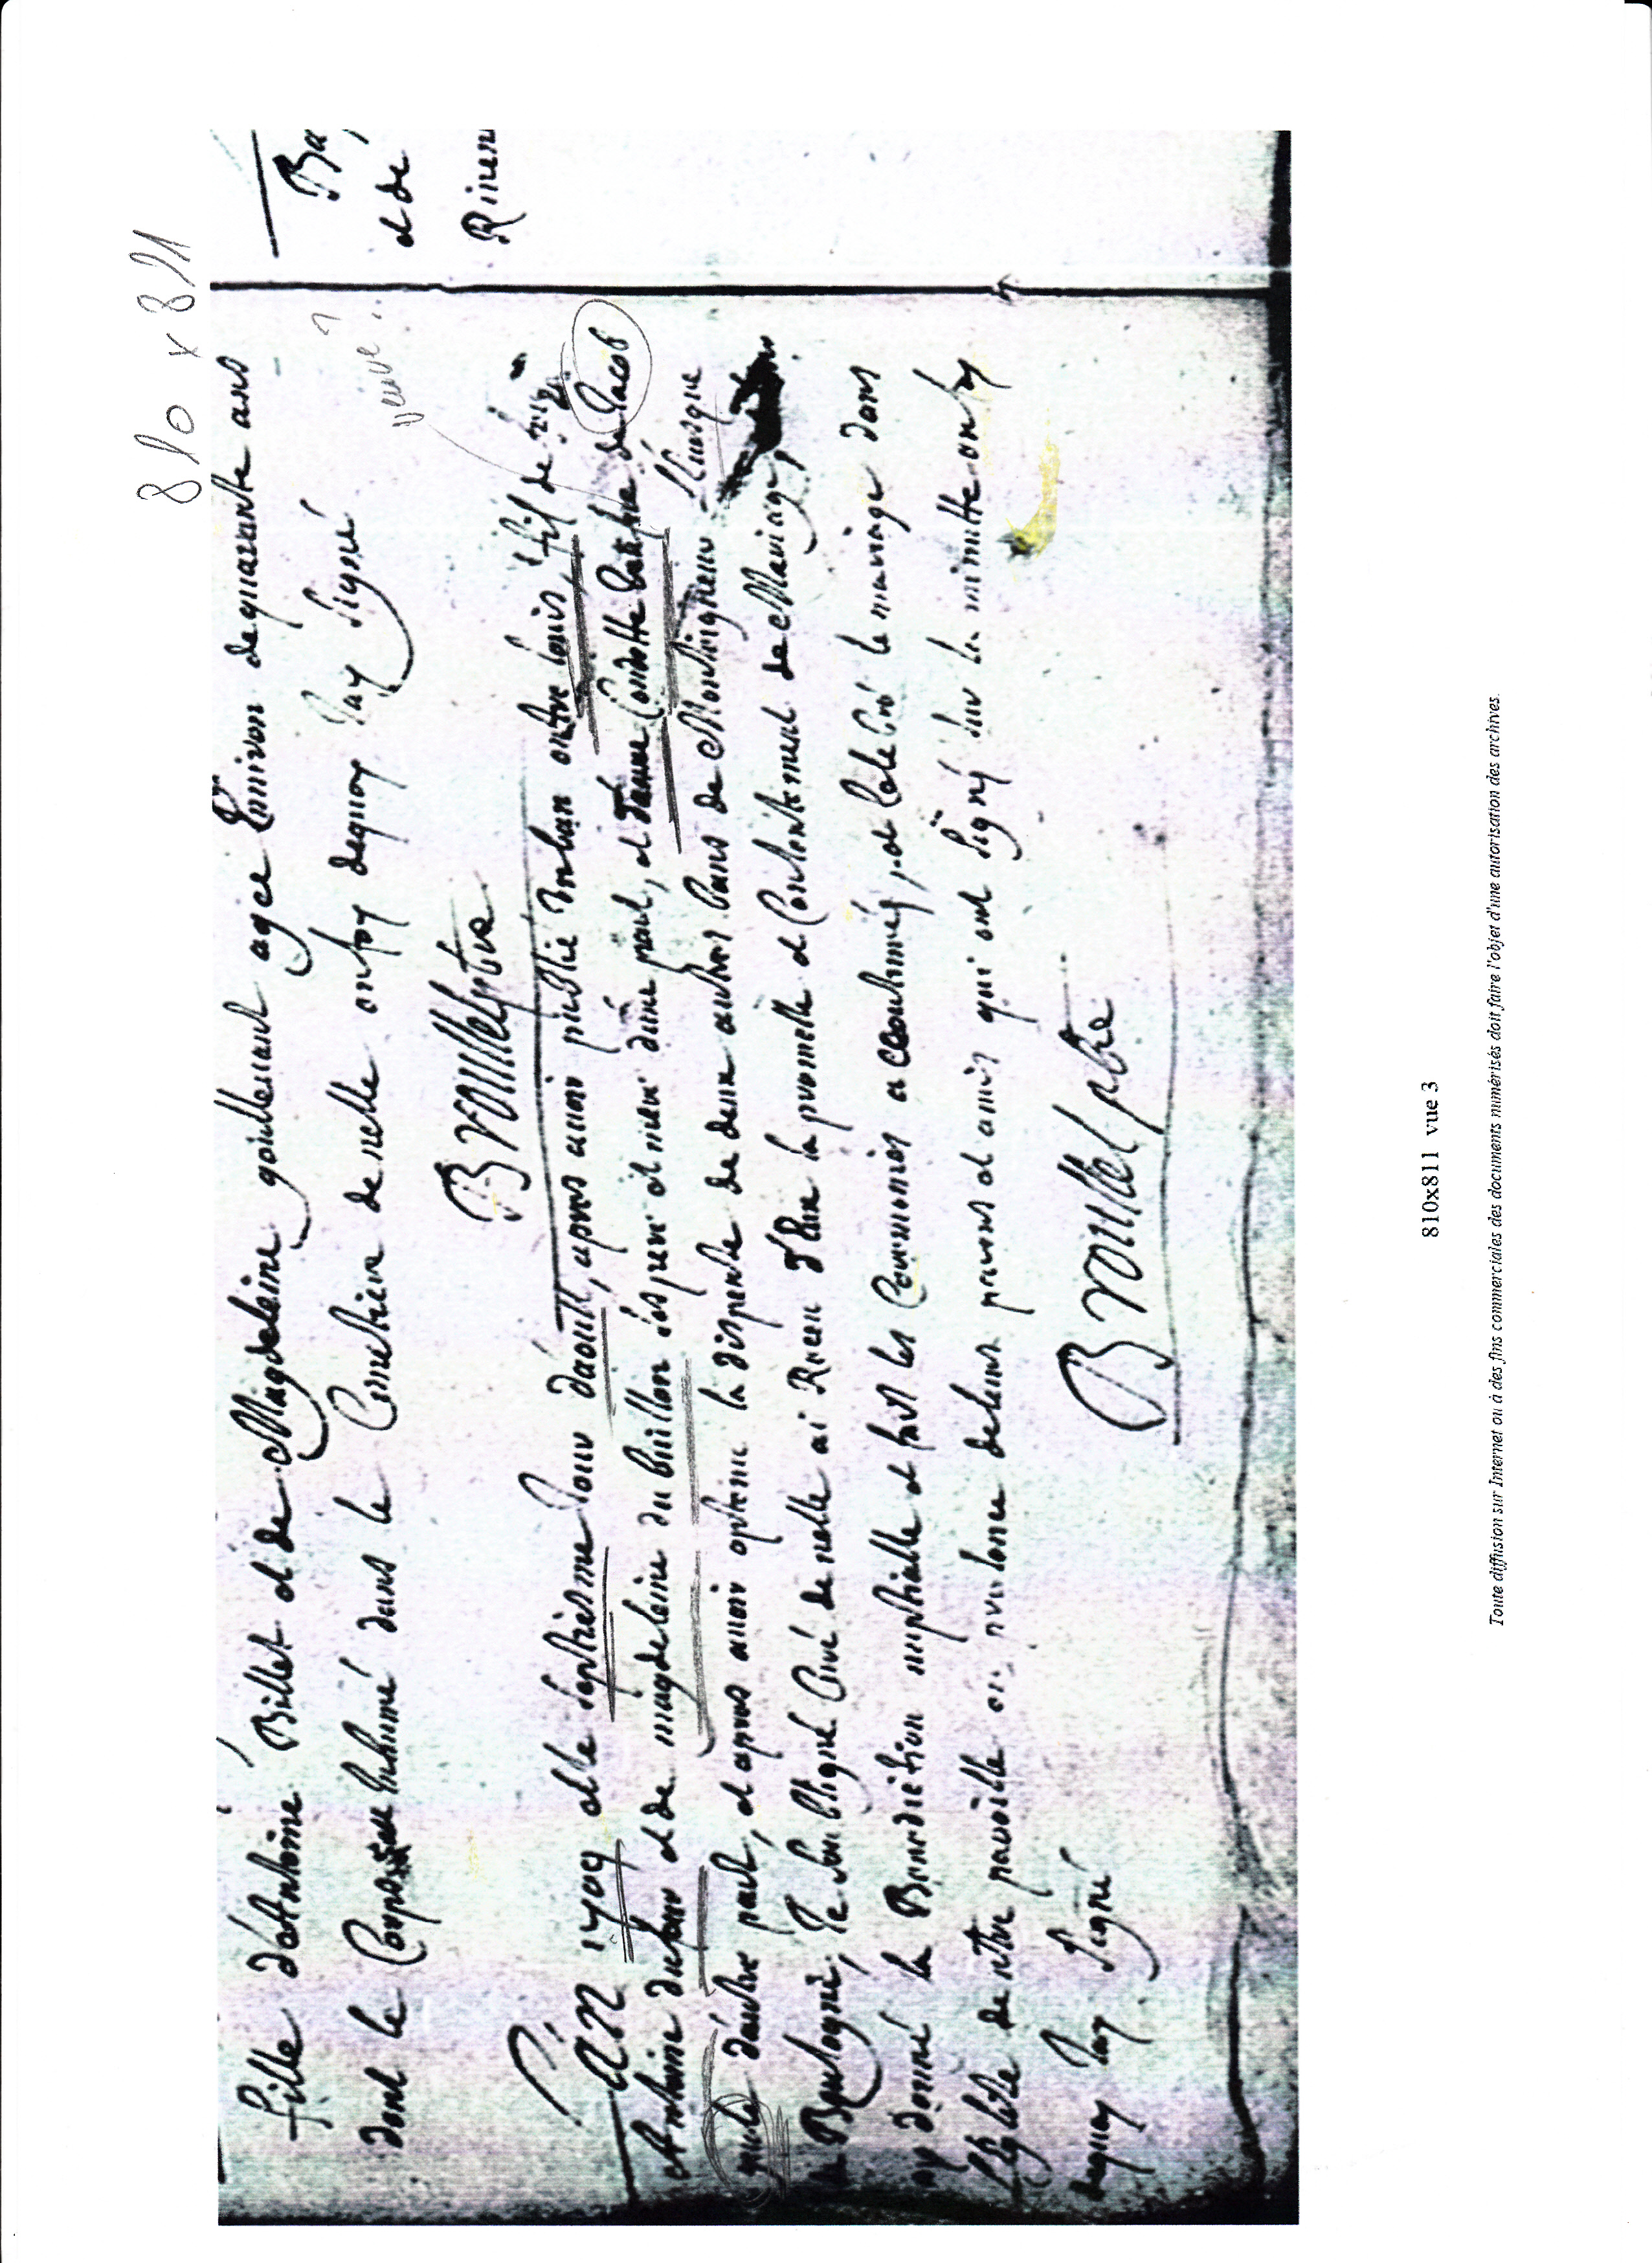 810 x 811
fille d'Antoine Billet et de Magdeleine goillenant agee Enuiron de quarante ans
dont le Corps inhumé dans le Cimetiere de nelle onfoy dequoy Jay Signé
Brouillet ptre
veuve ?
L'an 1709 et le septiesme Jour d'aoust, apres auoir publié un ban entre louis, fil de
Antoine dufour et de magdeleine du buillon ses pere et mere d'une part, et Jeanne Condette de Jacob
d'autre part, et apres auoir optenu la dispense de deux autres bans de Monseigneur L'euesque
de Boulogne, Je Soubsigné Curé de nelle ai Receu d'Eux la promesse et Consentement de Mariage,
ay donné la Benediction nuptialle et fait les Ceremonies accoutumés, et Celebré le mariage dans
l'Eglise de nottre paroisse en presence de leurs parens et amis qui ont Signé sur la minutte onfoy
dequoy Jay Signé
Brouillet ptre
Ba
et de
810x811 vue 3
Toute diffusion sur Internet ou à des fins commerciales des documents numérisés doit faire l'objet d'une autorisation des archives.